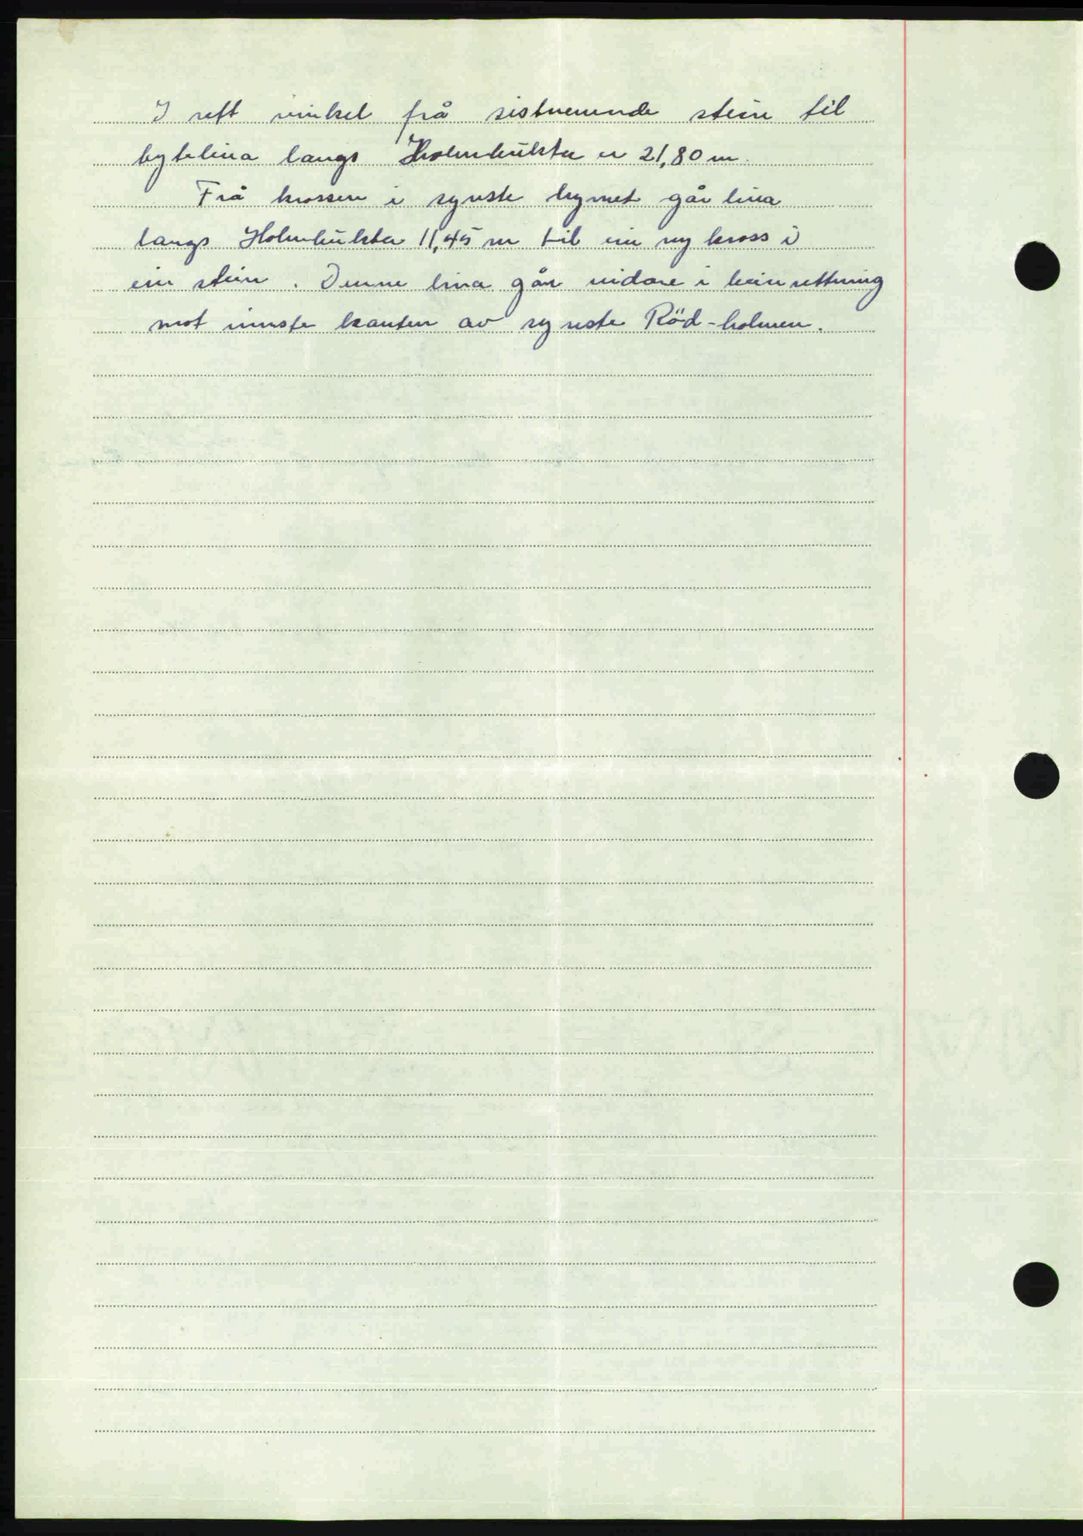 I rett vinkel frå sistnemnde stein til
bytelina langs Holmbukta er 21,80 m.
Frå krossen i synste hynet går lina
langs Holmbukta 11,45 m til ein ny kross i
ein stein. Denne lina går vidare i bein rettning
mot innste kanten av synste Röd-holmen.